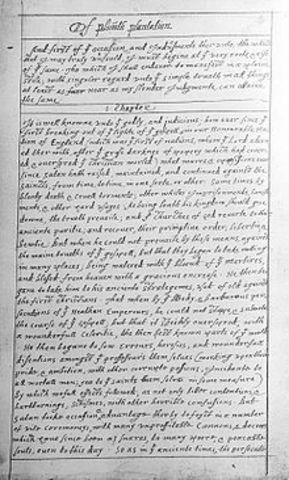 Of plimoth plantation.
And first of yᵉ occasion, and Indusments ther unto; the which
that I may truly unfould, I must begine at yᵉ very roote & rise
of yᵉ same. The which I shall endevor to manefest in a plaine
stile; with singuler regard unto yᵉ simple trueth in all things,
at least as near as my slender Judgmente can attaine
the same.
1. Chapter.
It is well knowne unto yᵉ godly, and judicious, how ever since yᵉ
first breaking out of yᵉ lighte of yᵉ gospell, in our Honourable Na-
tion of England (which was yᵉ first of nations, whom yᵉ Lord adorn-
ed ther with, affter yᵗ grosse darknes of popery which had cover-
ed, & overspred yᵉ christian worled) what warrs, & oppossissions ever
since satan hath raised, maintained, and continued against the
saincts, from time, to time, in one sorte, or other. Some times by
bloody death & cruell torments; other whiles Imprisonments, banish-
ments, & other hard usages. As being loath his kingdom should goe
downe, the trueth prevaile; and yᵉ Churches of God reverte to their
anciente puritie; and recover, their primative order, libertie, &
bewtie. But when he could not prevaile by these means, against
the maine trueths of yᵉ gospell, but that they began to take rootting
in many places; being watered with yᵉ blooud of yᵉ martires,
and blessed from heaven with a gracious encrease. He then be-
gane to take him to his anciente strategemes, used of old against
the first christians. That when by yᵉ bloody, & barbarous per-
secutions of yᵉ Heathen Emperours, he could not stoppe, & subuerte
the course of yᵉ Gospell; but that it speedily overspred, with
a wounderfull celeritie, the then best known parts of yᵉ world.
He then begane to sow errours, heresies, and wounderfull
disentions amongst yᵉ proffessours them selves (working upon their
pride, & ambition, with other corrupte passions, Incidente to
all mortall men; yea to yᵉ saints them selves in some measure)
By which wofull effects followed; as not only bitter contentions, &
hartburnings, schismes, with other horrible confusions. But
satan tooke occasion & advantage therby to foyst in a number
of vile ceremonies, with many unprofitable Cannons, & decrees
which have since been as snares, to many poore, & peaceable
souls, even to this day. So as in yᵉ anciente times, the persecuti